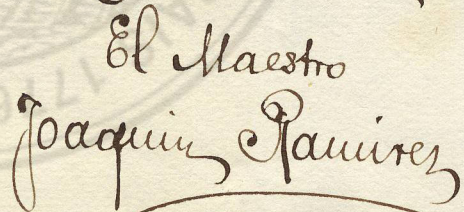 El Maestro
Joaquin Ramirez